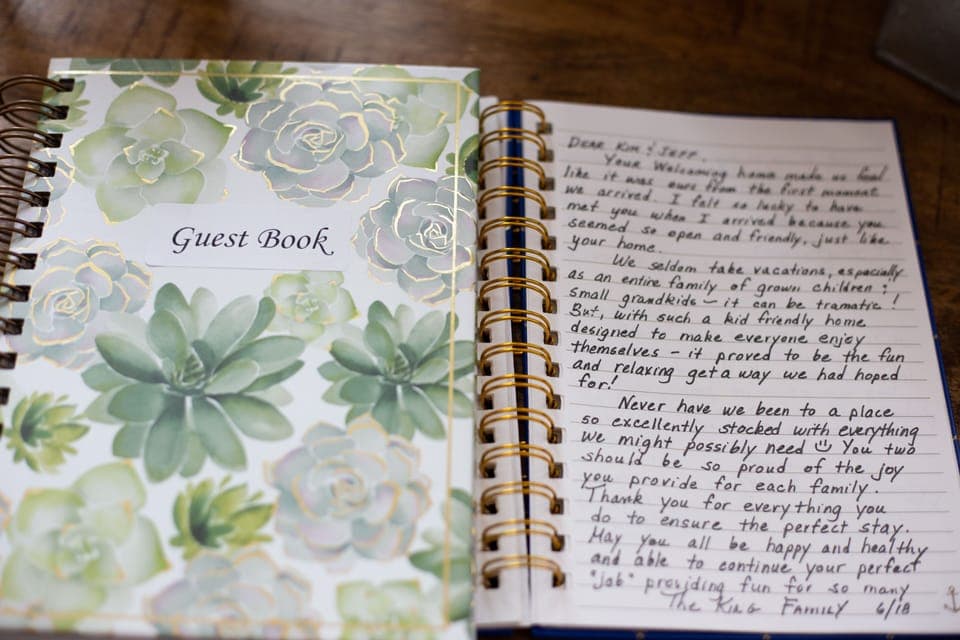 Guest Book
Dear Kim & Jeff,
Your Welcoming home made us feel
like it was ours from the first moment
we arrived. I felt so lucky to have
met you when I arrived because you
seemed so open and friendly, just like
your home.
We seldom take vacations, especially
as an entire family of grown children &
small grandkids – it can be tramatic!
But, with such a kid friendly home
designed to make everyone enjoy
themselves – it proved to be the fun
and relaxing getaway we had hoped
for!
Never have we been to a place
so excellently stocked with everything
we might possibly need You two
should be so proud of the joy
you provide for each family.
Thank you for everything you
do to ensure the perfect stay.
May you all be happy and healthy
and able to continue your perfect
"job" providing fun for so many
The King Family 6/18